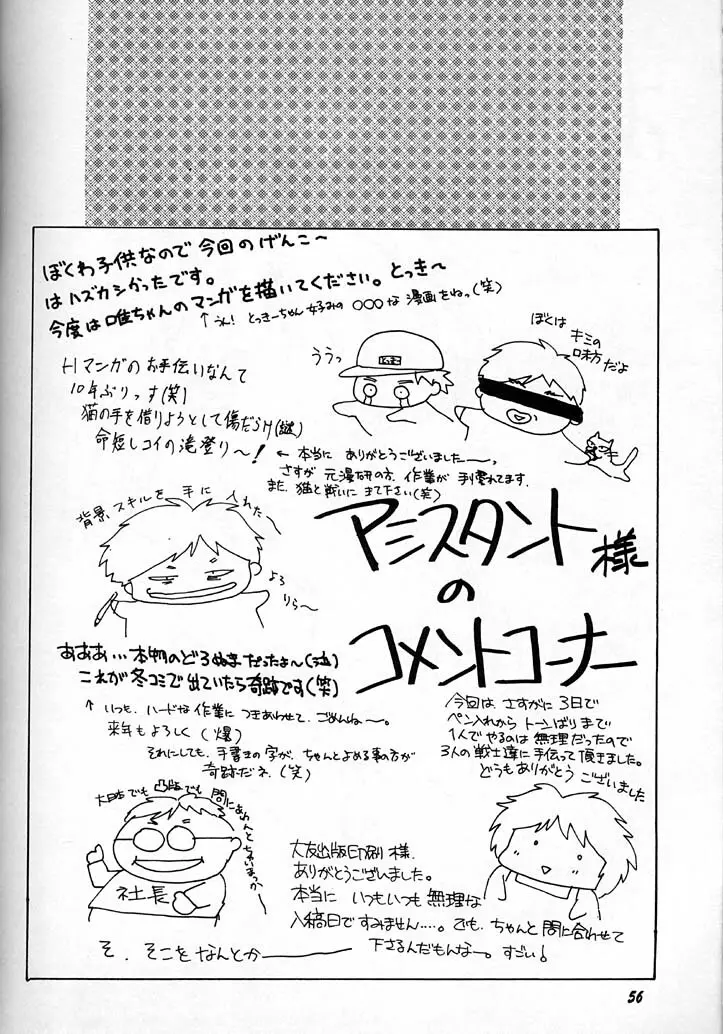 ぼくわ子供なので今回のげんこ〜
はハズカシかったです。
今度は唯ちゃんのマンガを描いてください。とっき〜
↑うん！とっきーちゃん好みの○○○な漫画をねっ(笑)
Hマンガのお手伝いなんて
10年ぶりっす(笑)
猫の手を借りようとして傷だらけ(謎)
命短しコイの滝登り〜！
ううっ
ぼくは
キミの
味方だよ
←本当にありがとうございましたーっ
さすが元漫研の方、作業が手慣れてます。
また、猫と戦いにきて下さい(笑)
背景スキルを手に入れた〜
よろ
りら〜
アシスタント様
の
コメントコーナー
あああ…本物のどろぬまだったよぉ〜(泣)
これが冬コミで出ていたら奇跡です(笑)
↑いつも、ハードな作業につきあわせて、ごめんね〜。
来年もよろしく(爆)
それにしても、手書きの字が、ちゃんとよめる事の方が
奇跡だネ(笑)
今回は、さすがに3日で
ペン入れからトーンばりまで
1人でやるのは無理だったので
3人の戦士達に手伝って頂きました。
どうもありがとうございました
大日本でも凸版でも間にあわんとちゃいまっか〜
社長
大友出版印刷様、
ありがとうございました。
本当にいつもいつも無理な
入稿日ですみません…。でも、ちゃんと間に合わせて
下さるんだもんなー。すごい！
そ、そこをなんとか———
56